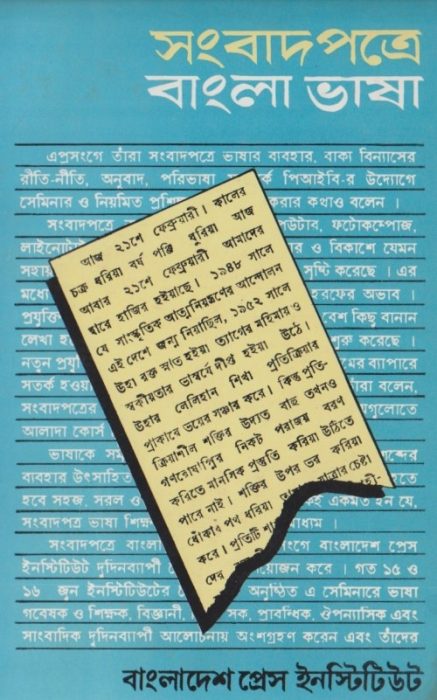 সংবাদপত্রে
বাংলা ভাষা
এপ্রসংগে তাঁরা সংবাদপত্রে ভাষার ব্যবহার, বাক্য বিন্যাসের
রীতি-নীতি, অনুবাদ, পরিভাষা র্ক পিআইবি-র উদ্যোগে
সেমিনার ও নিয়মিত প্রশি করার কথাও বলেন ।
সংবাদপত্রে ব পিউটার, ফটোকম্পোজ,
লাইনোটাই র ও বিকাশে যেমন
সহায় সৃষ্টি করেছে । এর
মধ্যে হরফের অভাব ।
প্রযুক্তি বেশ কিছু বানান
লেখা হ শুরু করেছে ।
নতুন প্রযু মের ব্যাপারে
সতর্ক হওয় রা বলেন,
সংবাদপত্রের গুলোতে
আলাদা কোর্স
ভাষাকে সম ব্দের
ব্যবহার উৎসাহিত তে
হবে সহজ, সরল ও একমত হন যে,
সংবাদপত্র ভাষা শিক্ষ মাধ্যম ।
সংবাদপত্রে বাংলা সংগে বাংলাদেশ প্রেস
ইনস্টিটিউট দুদিনব্যাপী য়োজন করে । গত ১৫ ও
১৬ জুন ইনস্টিটিউটের অনুষ্ঠিত এ সেমিনারে ভাষা
গবেষক ও শিক্ষক, বিজ্ঞানী, সক, প্রাবন্ধিক, ঔপন্যাসিক এবং
সাংবাদিক দুদিনব্যাপী আলোচনায় অংশগ্রহণ করেন এবং তাঁদের
আজ ২১শে ফেব্রুয়ারী । কালের
চক্র ধরিয়া বর্ষ পঞ্জি ধুরিয়া আজ
আবার ২১শে ফেব্রুয়ারী আমাদের
দ্বারে হাজির হইয়াছে । ১৯৪৮ সালে
যে সাংস্কৃতিক আত্মনিয়ন্ত্রণের আন্দোলন
এই দেশে জন্ম নিয়াছিল, ১৯৫২ সালে
উহা রক্ত স্নাত হইয়া ত্যাগের মহিমায় ও
স্বকীয়তার ভাস্বর্যে দীপ্ত হইয়া উঠে ।
উহার লেলিহান শিখা প্রতিক্রিয়ার
প্রাকারে ভয়ের সঞ্চার করে । কিন্তু প্রতি-
ক্রিয়াশীল শক্তির উদ্যত বাহু তখনও
গণরোষাগ্নির নিকট পরাজয় বরণ
করিতে মানসিক প্রস্তুতি করিয়া উঠিতে
পারে নাই । শক্তির উপর ভর করিয়া
ধোঁকার পথ ধরিয়া যাত্রার চেষ্টা
করে । প্রতিটি শ
দের
বাংলাদেশ প্রেস ইনস্টিটিউট